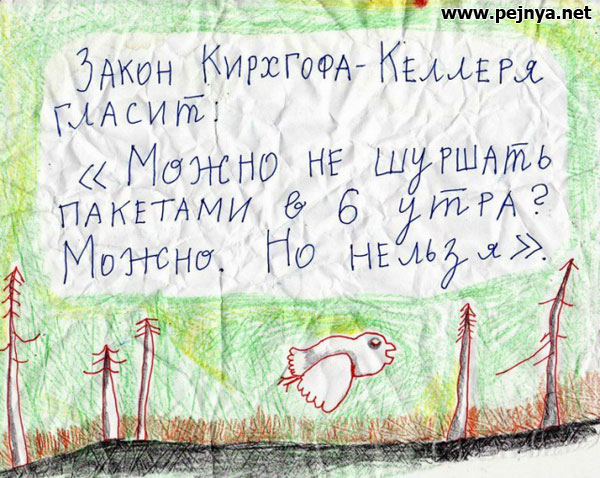 www.pejnya.net
Закон Кирхгофа-Келлеря
гласит:
«Можно не шуршать
пакетами в 6 утра?
Можно. Но нельзя».